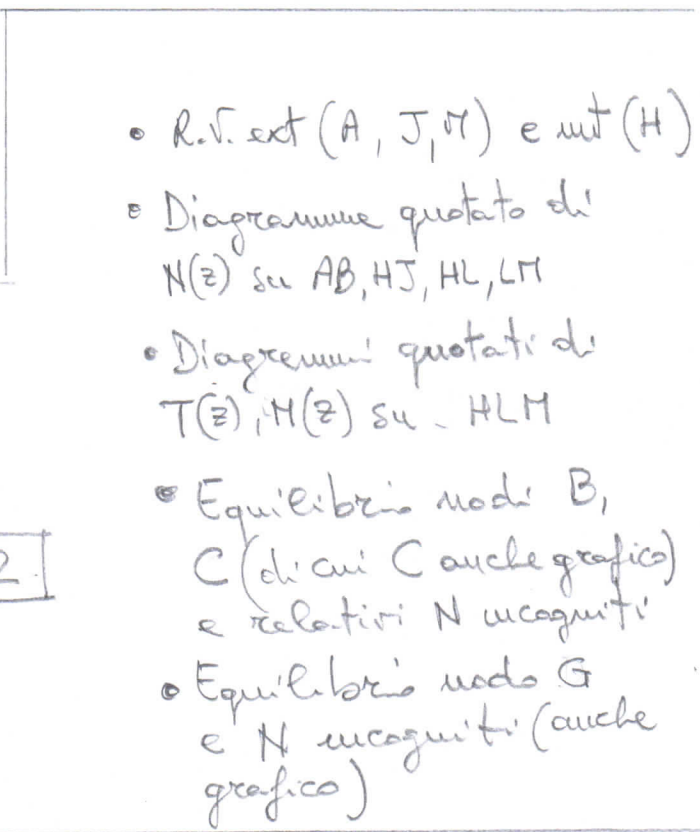 • R.V. ext (A, J, M) e int (H)
• Diagramme quotato di
N(z) su AB, HJ, HL, LM
• Diagrammi quotati di
T(z), M(z) su HLM
• Equilibrio nodi B,
C (di cui C anche grafico)
e relativi N incogniti
2
• Equilibrio nodo G
e N incogniti (anche
grafico)